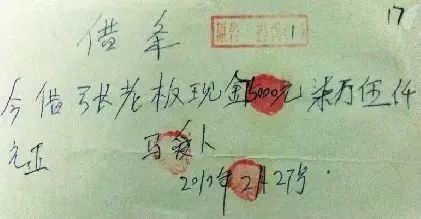 17
借条
今借张老板现金75000元柒万伍仟
元正
2012年2月27号.